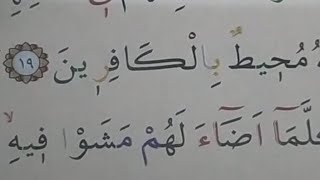 مُحِيطٌ بِالْكَافِرِينَ ١٩
كُلَّمَآ اَضَٓاءَ لَهُمْ مَشَوْا فِيهِ